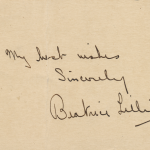 My best wishes
Sincerely
Beatrice Lillie